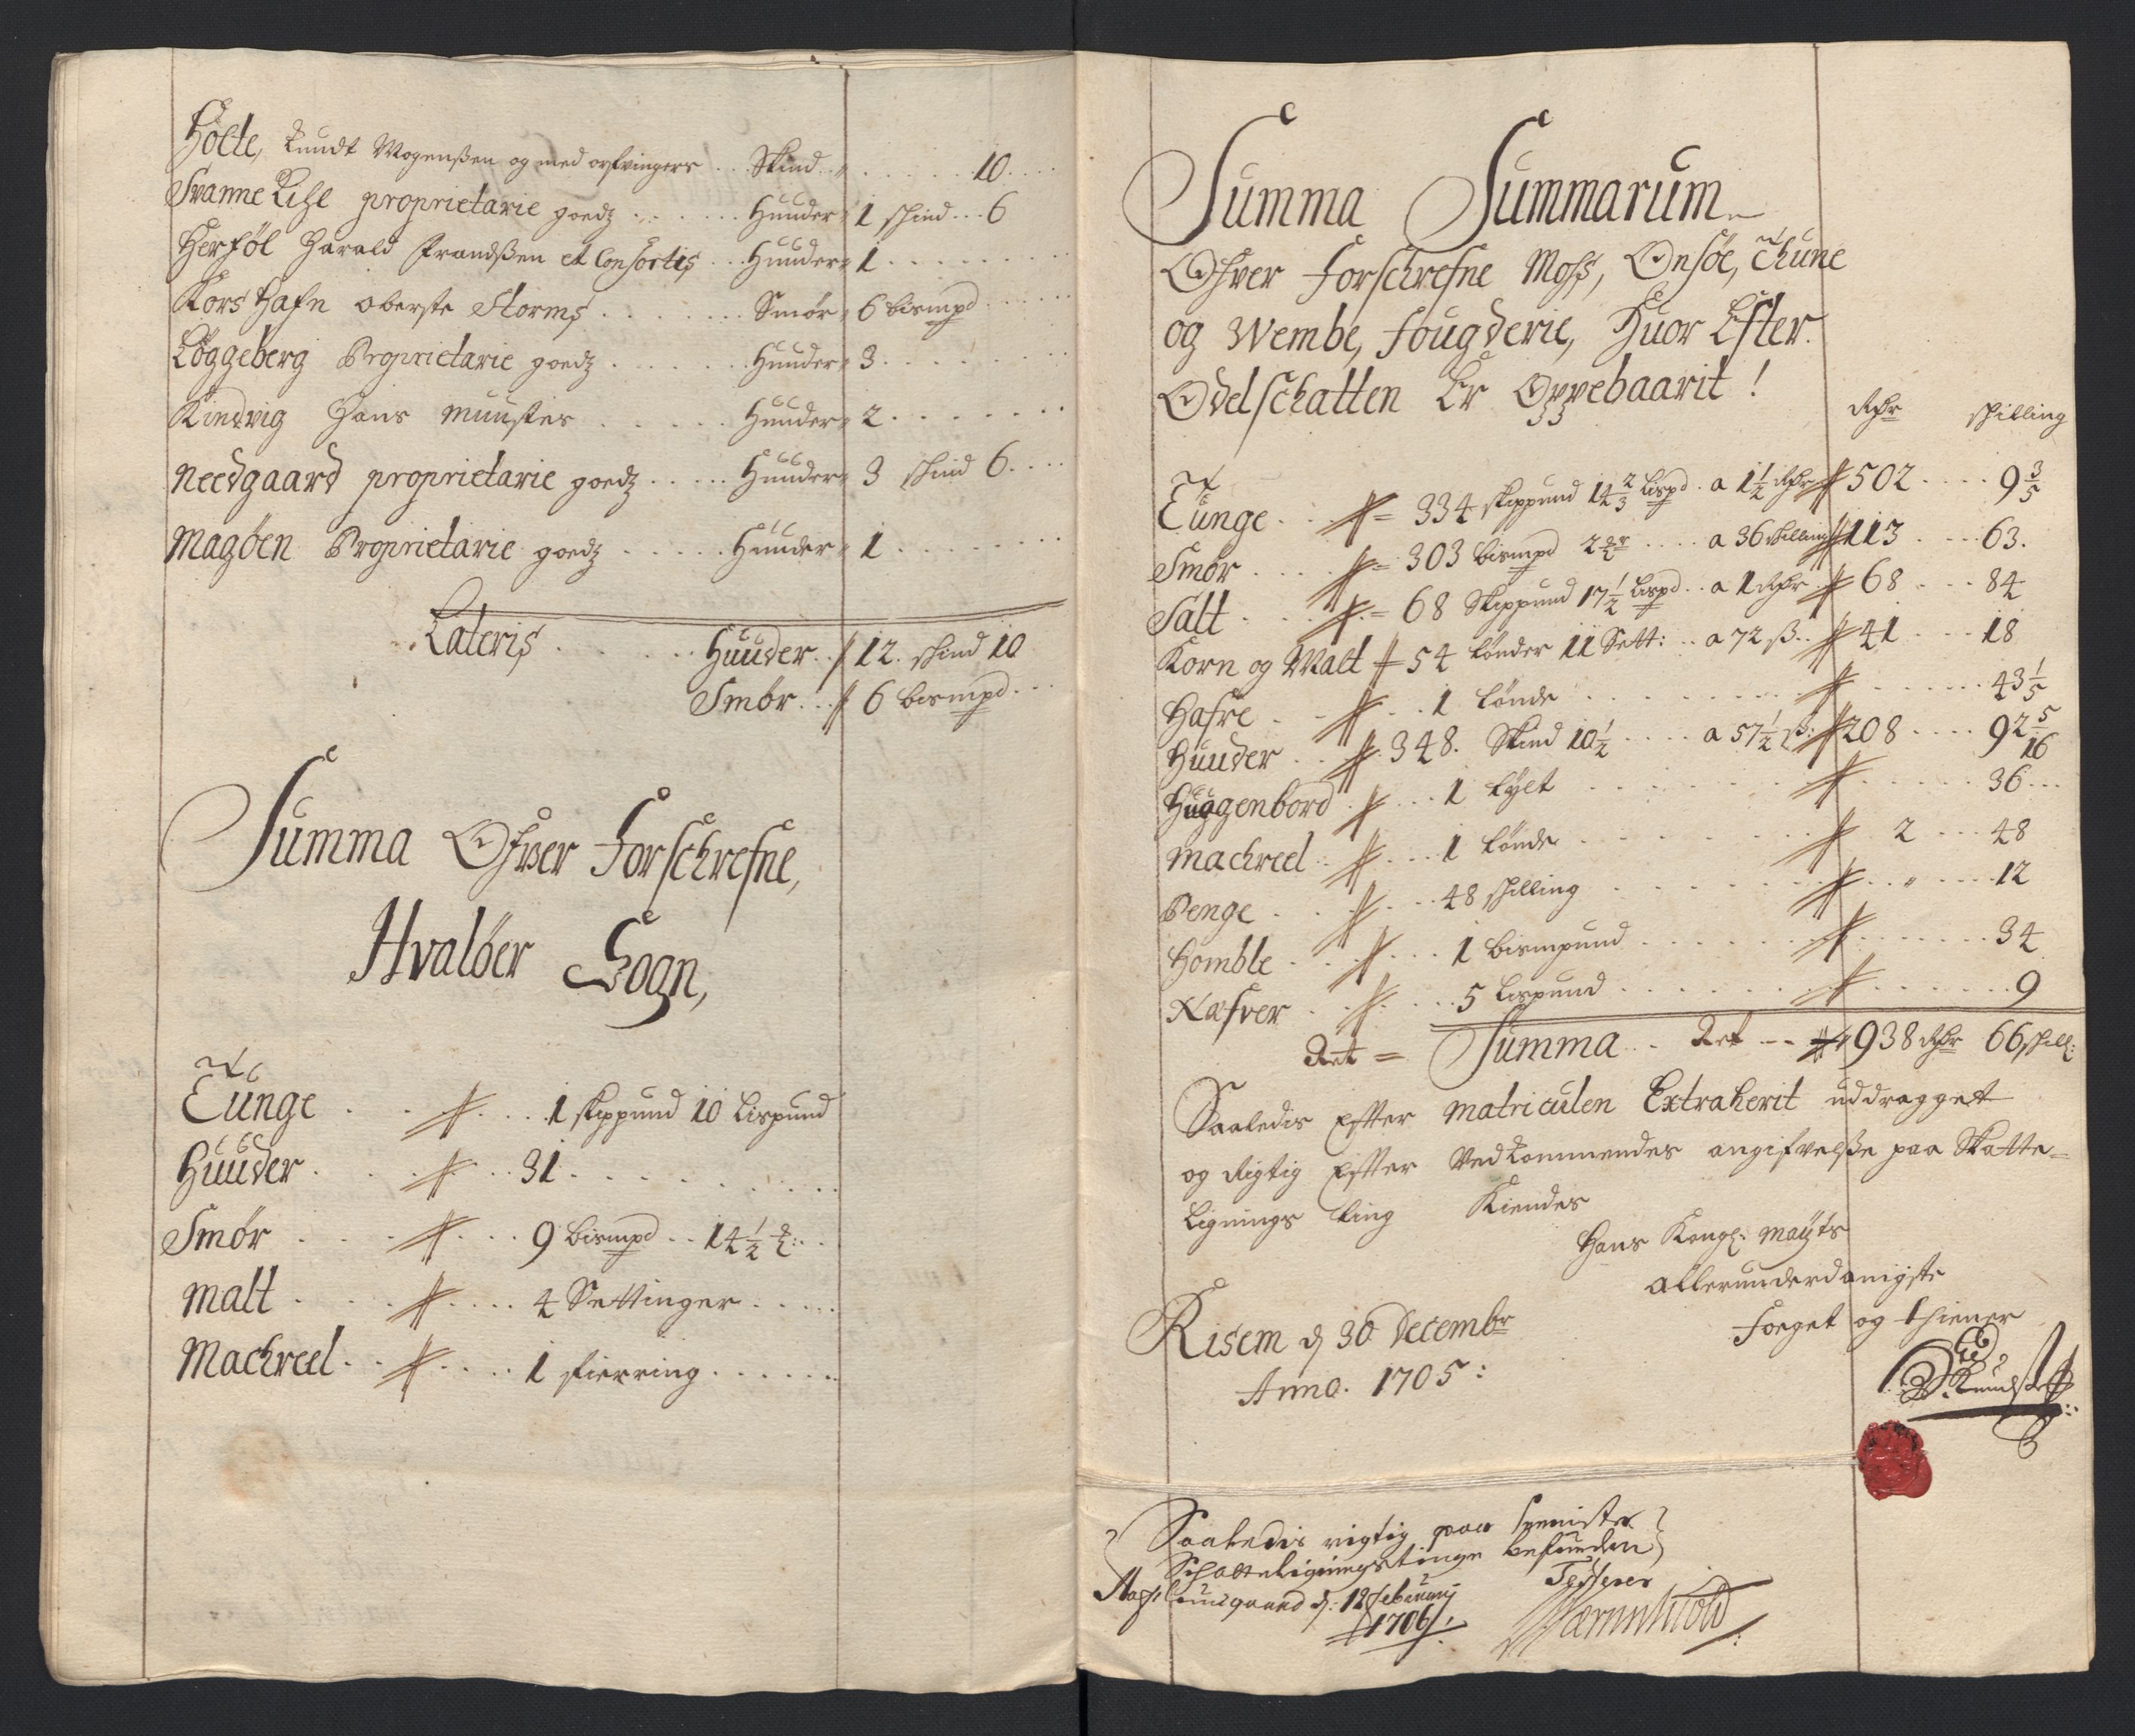 Holte, Knudt Mogenßen og med arfvinger .. Skind .. " ...... 10 ....
Svanne Kihl proprietarie goedz ....... Huuder " 1 skind ... 6
Herføl Harald Frandßen et Consortis .. Huuder " 1 ........
Kors hafn oberste Storms ....... Smør " 6 bismpd .....
Løggeberg Proprietarie goedz ...... Huuder " 3 .......
Kindvig Hans Muuster ..... Huuder " 2 .......
Needgaard proprietarie goedz ..... Huuder " 3 skind 6 ....
Magøen Proprietarie goedz ..... Huuder " 1 .......
Lateris ...... Huuder .. 12. skind 10
Smør ... 6 bismpd ...
Summa Ofver Forschrefne,
Hvaløer Sogn,
Tunge .. .. 1 skippund 10 Lispund
Huuder .. .. 31 ........
Smør .. .. 9 bismpd .. 14½ ℔ ..
Malt .. .. 4 Settinger .....
Machreel .. .. 1 fierring ......
Summa Summarum
Ofver Forschrefne Moss, Onsøe, Thune
og Wembe, Fougderie, Huor Efter
Odelschatten Er Oppebaarit!
Rdr skilling
Tunge .. = 334 skippund 14 2/3 Lispd . a 1½ Rdr 502 .... 9 3/5
Smør .... = 303 bismpd 2 .... a 36 skilling 113 ... 63.
Salt .... = 68 Skippund 17½ Lispd .. a 1 Rdr 68 ... 84
Korn og Malt 54 tønder 11 Sett: .. a 72 ß .. 41 ... 18
Hafre .. .. 1 tønde ........ 43 1/5
Huuder .. 348. Skind 10½ .... a 57½ ß: 208 .... 92 5/16
Huggenbord .. 1 tylt ........ 36 ...
Machreel .. ... 1 tønde ....... 2 ... 48
Penge .. ... 48 skilling ....... " ... 12
Homble .. ... 1 bismpund ....... 34
Næfver .. .... 5 Lispund ........ 9
Summa .. 938 Rdr 66 skill:
Saaledis Efter Matriculen Extraherit uddragget
og Rigtig Efter Vedkommendes angifvelße paa Skatte=
Lignings ting Kiendes
Hans Kongl: Mayts
allerunderdanigste
Foeget og thiener
Risem d 30 Decembr
Anno. 1705:
Saaledis rigtig paa
Schatteligningstinge befunden
d: 12 Februarij
1706